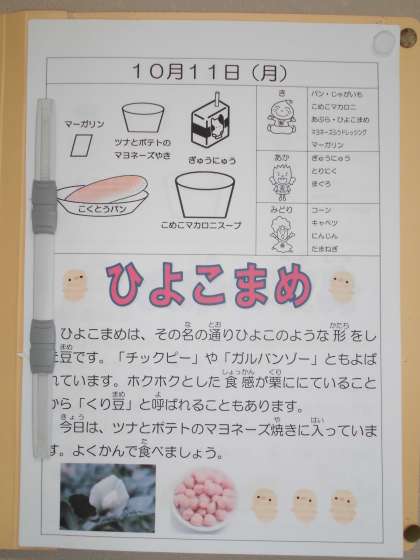 10月11日（月）
マーガリン
ツナとポテトの
マヨネーズやき
ぎゅうにゅう
こくとうパン
こめこマカロニスープ
き
パン・じゃがいも
こめこマカロニ
あぶら・ひよこまめ
マヨネーズ
マーガリン
あか
ぎゅうにゅう
とりにく
まぐろ
みどり
コーン
キャベツ
にんじん
たまねぎ
ひよこまめ
ひよこまめは、その名の通りひよこのような形をし
豆です。「チックピー」や「ガルバンゾー」ともよば
れています。ホクホクとした食感が栗ににていること
から「くり豆」と呼ばれることもあります。
今日は、ツナとポテトのマヨネーズ焼きに入っていま
す。よくかんで食べましょう。